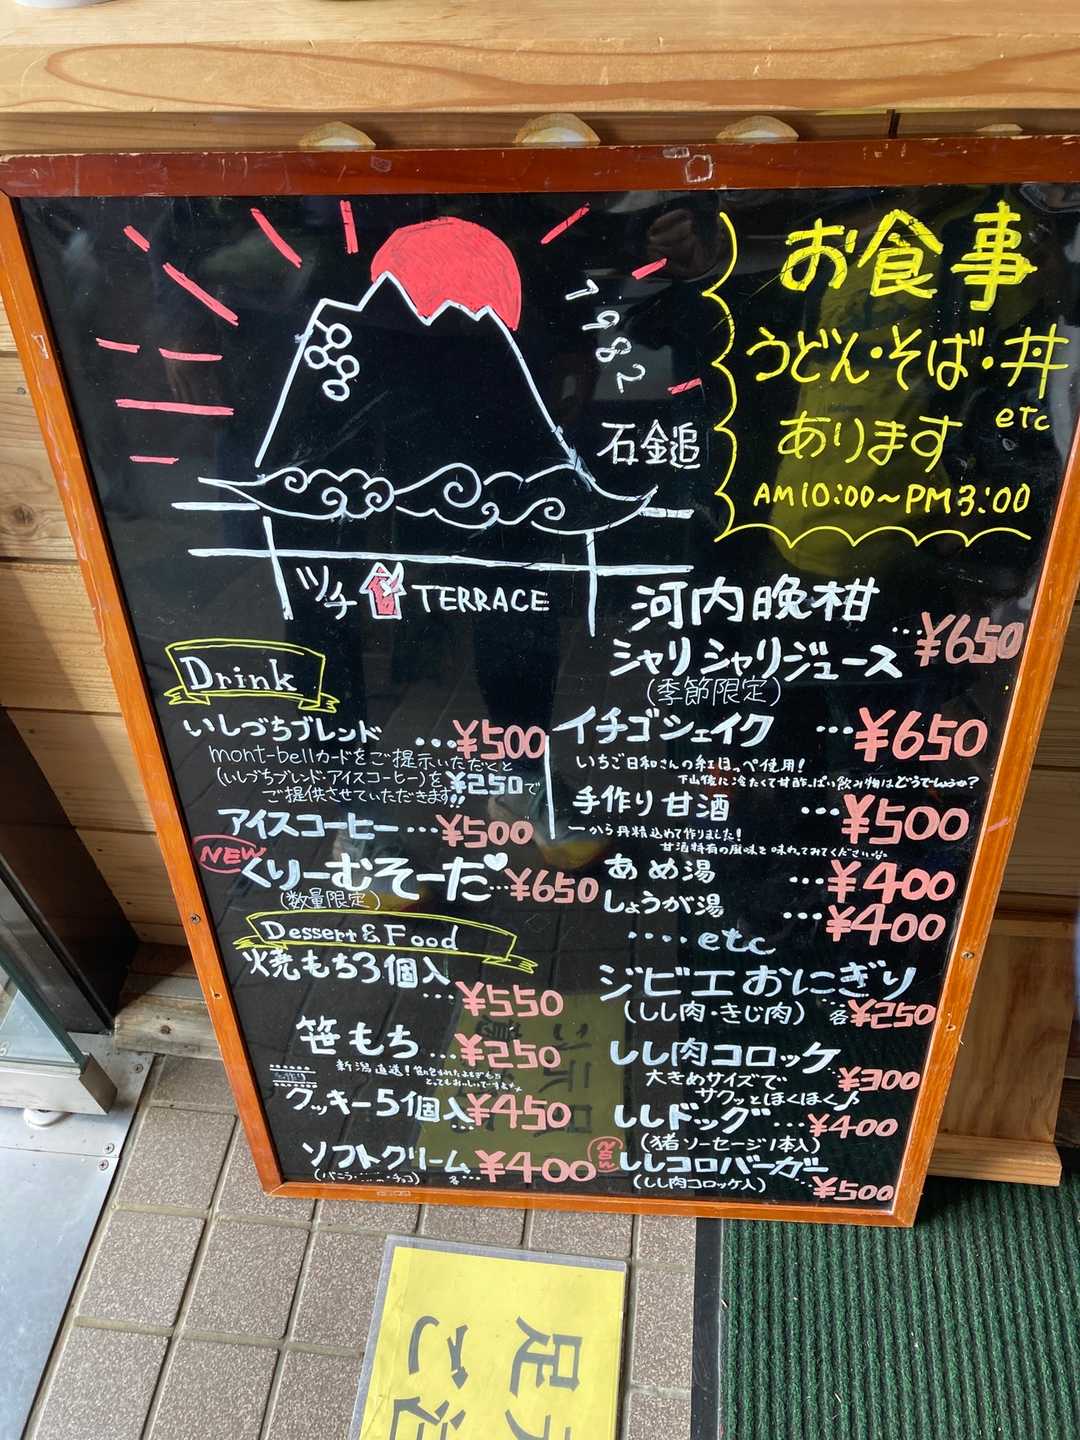 1982
石鎚
ツチ TERRACE
お食事
うどん・そば・丼
etc
あります
AM10:00～PM3:00
Drink
いしづちブレンド …¥500
mont-bellカードをご提示いただくと
(いしづちブレンド・アイスコーヒー)を¥250で
ご提供させていただきます!!
アイスコーヒー…¥500
NEW
くりーむそーだ…¥650
(数量限定)
Dessert & Food
焼もち3個入
…¥550
笹もち…¥250
新潟直送!
クッキー5個入…¥450
ソフトクリーム 各…¥400
河内晩柑
シャリシャリジュース …¥650
(季節限定)
イチゴシェイク …¥650
いちご日和さんの紅ほっぺ使用!
下山後に冷たくて甘酸っぱい飲み物はどうでしょうか?
手作り甘酒 …¥500
一から丹精込めて作りました!
甘酒特有の風味を味わってみてくださいな。
あめ湯 …¥400
しょうが湯 …¥400
....etc
ジビエおにぎり
(しし肉・きじ肉) 各¥250
しし肉コロッケ
大きめサイズで …¥300
サクッとほくほく♪
ししドッグ …¥400
(猪ソーセージ1本入)
ししコロバーガー
(しし肉コロッケ入) …¥500
足元
ご注